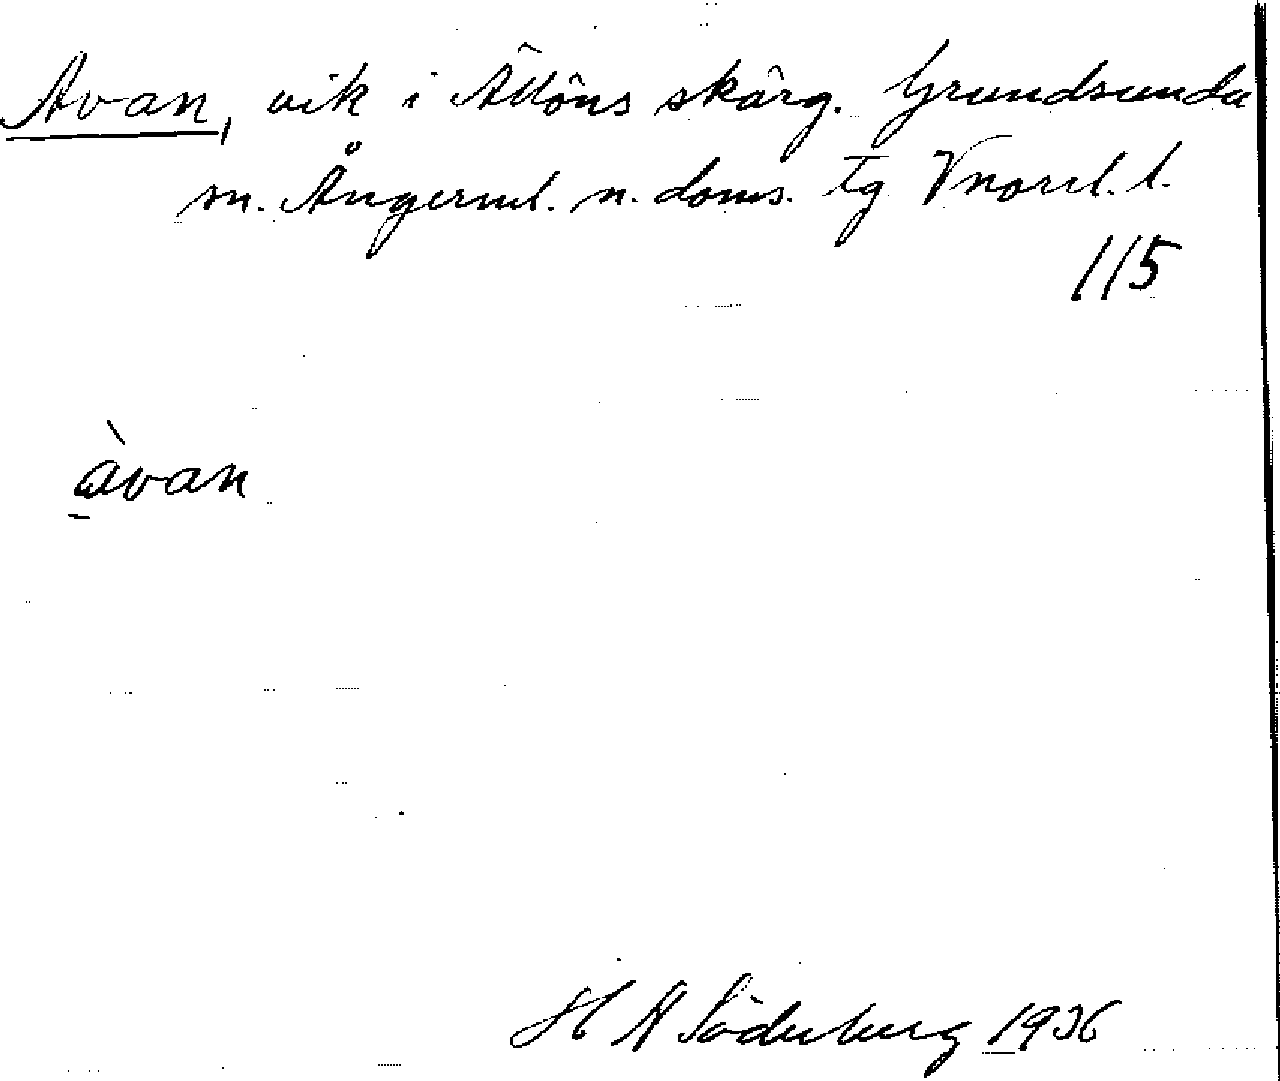 Avan, vik iÄllöns skärg. Grundsunda
sn. Ångerml. n. doms. tg Vnorrl. l.
115
àvan
H A Söderberg 1936